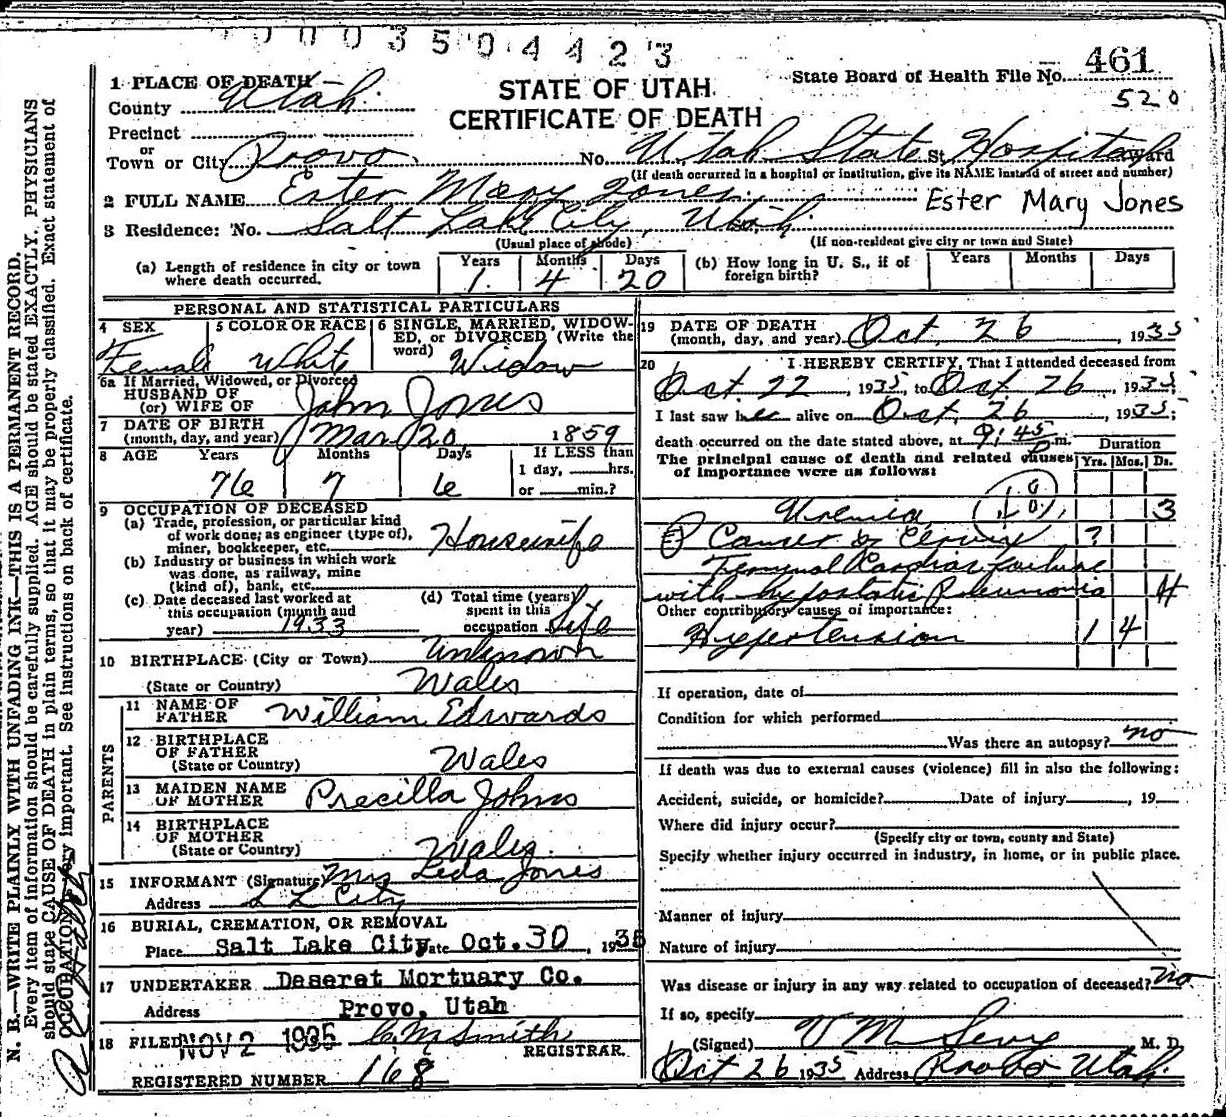 0003504423
461
520
STATE OF UTAH
CERTIFICATE OF DEATH
State Board of Health File No.
1 PLACE OF DEATH
County Utah
Precinct
or
Town or City Provo No. Utah State St. Hospital Ward
(If death occurred in a hospital or institution, give its NAME instead of street and number)
2 FULL NAME Ester Mary Jones Ester Mary Jones
3 Residence: No. Salt Lake City, Utah
(Usual place of abode) (If non-resident give city or town and State)
(a) Length of residence in city or town where death occurred. Years 1 Months 4 Days 20
(b) How long in U. S., if of foreign birth? Years Months Days
PERSONAL AND STATISTICAL PARTICULARS
4 SEX Female
5 COLOR OR RACE White
6 SINGLE, MARRIED, WIDOWED, or DIVORCED (Write the word) Widow
6a If Married, Widowed, or Divorced
HUSBAND OF
(or) WIFE OF John Jones
7 DATE OF BIRTH
(month, day, and year) Mar 20 1859
8 AGE Years 76 Months 7 Days 6
If LESS than
1 day, hrs.
or min.?
9 OCCUPATION OF DECEASED
(a) Trade, profession, or particular kind
of work done; as engineer (type of),
miner, bookkeeper, etc. Housewife
(b) Industry or business in which work
was done, as railway, mine
(kind of), bank, etc.
(c) Date deceased last worked at
this occupation (month and
year) 1933
(d) Total time (years)
spent in this
occupation Life
10 BIRTHPLACE (City or Town) Unknown
(State or Country) Wales
PARENTS
11 NAME OF
FATHER William Edwards
12 BIRTHPLACE
OF FATHER
(State or Country) Wales
13 MAIDEN NAME
OF MOTHER Precilla Johns
14 BIRTHPLACE
OF MOTHER
(State or Country) Wales
15 INFORMANT (Signature) Mrs Leda Jones
Address S L City
16 BURIAL, CREMATION, OR REMOVAL
Place Salt Lake City Date Oct. 30, 1935
17 UNDERTAKER Deseret Mortuary Co.
Address Provo, Utah
18 FILED NOV 2 1935 C M Smith
REGISTRAR.
REGISTERED NUMBER 168
19 DATE OF DEATH
(month, day, and year) Oct. 26, 1935
20 I HEREBY CERTIFY, That I attended deceased from
Oct. 22, 1935, to Oct 26, 1935
I last saw her alive on Oct. 26, 1935;
death occurred on the date stated above, at 9:45 P m.
The principal cause of death and related causes
of importance were as follows:
Duration
Yrs. Mos. Ds.
Uremia 3
Cancer of Cervix ?
Terminal Cardiac failure
with hypostatic Pneumonia 4
Other contributory causes of importance:
Hypertension 1 4
If operation, date of
Condition for which performed
Was there an autopsy? no
If death was due to external causes (violence) fill in also the following:
Accident, suicide, or homicide? Date of injury , 19
Where did injury occur?
(Specify city or town, county and State)
Specify whether injury occurred in industry, in home, or in public place.
Manner of injury
Nature of injury
Was disease or injury in any way related to occupation of deceased? no
If so, specify
(Signed) M. D.
Oct 26 1935 Address Provo Utah
N. B.—WRITE PLAINLY WITH UNFADING INK—THIS IS A PERMANENT RECORD.
Every item of information should be carefully supplied. AGE should be stated EXACTLY. PHYSICIANS
should state CAUSE OF DEATH in plain terms, so that it may be properly classified. Exact statement of
OCCUPATION is very important. See instructions on back of certificate.